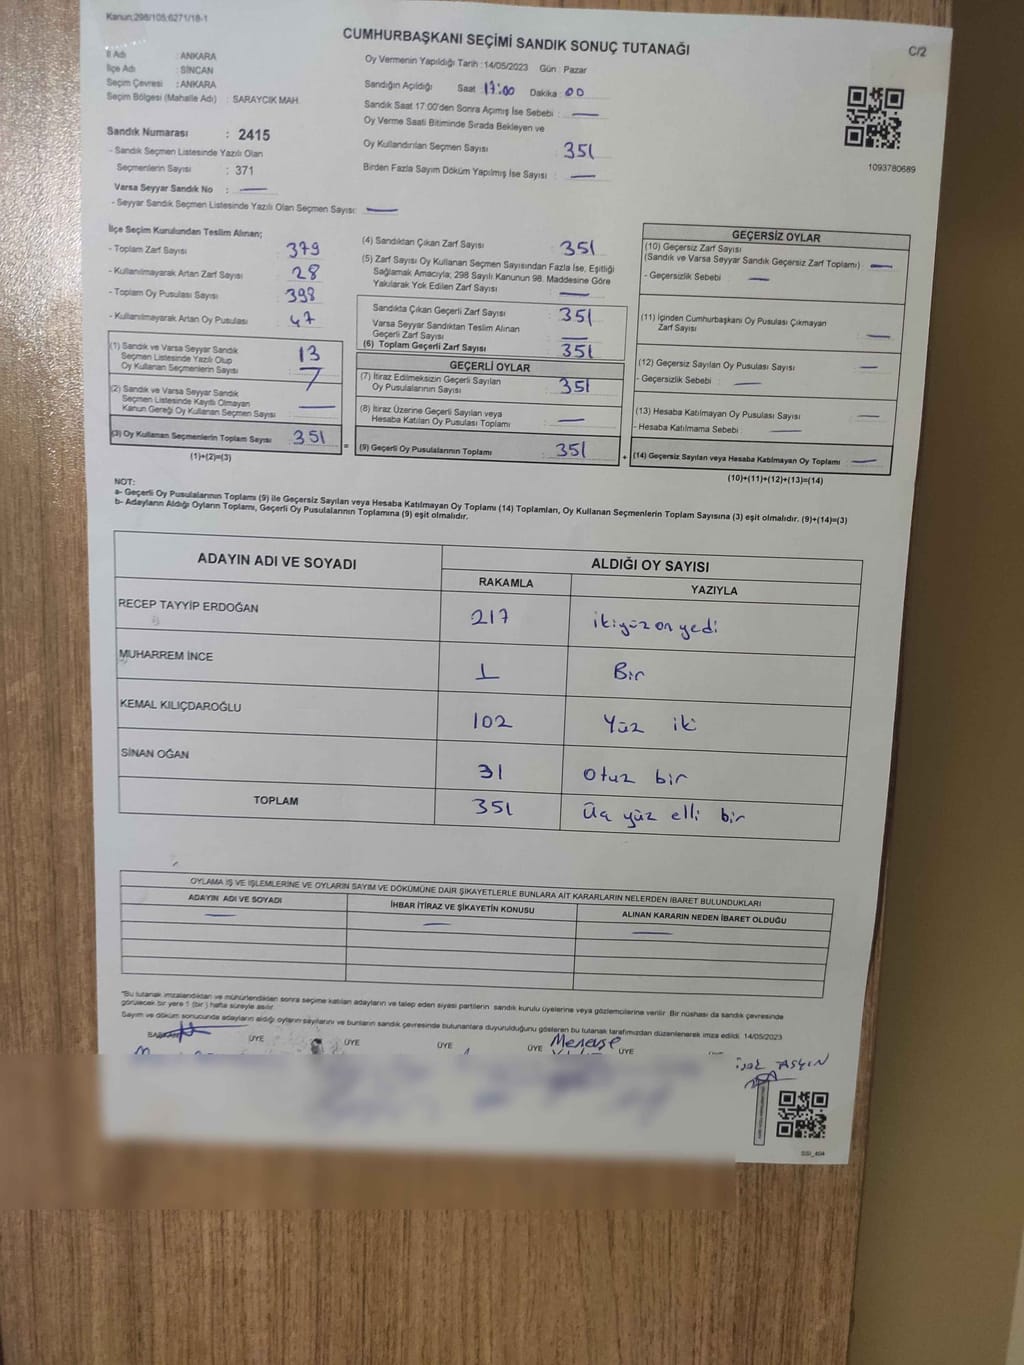 Kanun;298/105;6271/18-1
CUMHURBAŞKANI SEÇİMİ SANDIK SONUÇ TUTANAĞI
C/2
İl Adı : ANKARA
İlçe Adı : SİNCAN
Seçim Çevresi : ANKARA
Seçim Bölgesi (Mahalle Adı) : SARAYCIK MAH.
Oy Vermenin Yapıldığı Tarih :14/05/2023 Gün : Pazar
Sandığın Açıldığı Saat 17:00 Dakika : 00
Sandık Saat 17:00'den Sonra Açımış İse Sebebi : —
Oy Verme Saati Bitiminde Sırada Bekleyen ve
Oy Kullandırılan Seçmen Sayısı 351
Birden Fazla Sayım Döküm Yapılmış İse Sayısı : —
1093780689
Sandık Numarası : 2415
- Sandık Seçmen Listesinde Yazılı Olan
Seçmenlerin Sayısı : 371
Varsa Seyyar Sandık No : —
- Seyyar Sandık Seçmen Listesinde Yazılı Olan Seçmen Sayısı: —
İlçe Seçim Kurulundan Teslim Alınan;
- Toplam Zarf Sayısı 379
- Kullanılmayarak Artan Zarf Sayısı 28
- Toplam Oy Pusulası Sayısı 398
- Kullanılmayarak Artan Oy Pusulası 47
(1) Sandık ve Varsa Seyyar Sandık
Seçmen Listesinde Yazılı Olup
Oy Kullanan Seçmenlerin Sayısı 13
7
(2) Sandık ve Varsa Seyyar Sandık
Seçmen Listesinde Kayıtlı Olmayan
Kanun Gereği Oy Kullanan Seçmen Sayısı —
(3) Oy Kullanan Seçmenlerin Toplam Sayısı 351
(1)+(2)=(3)
=
(4) Sandıktan Çıkan Zarf Sayısı 351
(5) Zarf Sayısı Oy Kullanan Seçmen Sayısından Fazla İse, Eşitliği
Sağlamak Amacıyla; 298 Sayılı Kanunun 98. Maddesine Göre
Yakılarak Yok Edilen Zarf Sayısı : —
Sandıkta Çıkan Geçerli Zarf Sayısı : 351
Varsa Seyyar Sandıktan Teslim Alınan
Geçerli Zarf Sayısı : —
(6) Toplam Geçerli Zarf Sayısı 351
GEÇERLİ OYLAR
(7) İtiraz Edilmeksizin Geçerli Sayılan
Oy Pusulalarının Sayısı 351
(8) İtiraz Üzerine Geçerli Sayılan veya
Hesaba Katılan Oy Pusulası Toplamı —
(9) Geçerli Oy Pusulalarının Toplamı 351
+
GEÇERSİZ OYLAR
(10) Geçersiz Zarf Sayısı
(Sandık ve Varsa Seyyar Sandık Geçersiz Zarf Toplamı) —
- Geçersizlik Sebebi : —
(11) İçinden Cumhurbaşkanı Oy Pusulası Çıkmayan
Zarf Sayısı —
(12) Geçersiz Sayılan Oy Pusulası Sayısı —
- Geçersizlik Sebebi : —
(13) Hesaba Katılmayan Oy Pusulası Sayısı —
- Hesaba Katılmama Sebebi : —
(14) Geçersiz Sayılan veya Hesaba Katılmayan Oy Toplamı —
(10)+(11)+(12)+(13)=(14)
NOT:
a- Geçerli Oy Pusulalarının Toplamı (9) ile Geçersiz Sayılan veya Hesaba Katılmayan Oy Toplamı (14) Toplamları, Oy Kullanan Seçmenlerin Toplam Sayısına (3) eşit olmalıdır. (9)+(14)=(3)
b- Adayların Aldığı Oyların Toplamı, Geçerli Oy Pusulalarının Toplamına (9) eşit olmalıdır.
ADAYIN ADI VE SOYADI ALDIĞI OY SAYISI
RAKAMLA YAZIYLA
RECEP TAYYİP ERDOĞAN 217 ikiyüz on yedi
MUHARREM İNCE 1 Bir
KEMAL KILIÇDAROĞLU 102 Yüz iki
SİNAN OĞAN 31 Otuz bir
TOPLAM 351 Üç yüz elli bir
OYLAMA İŞ VE İŞLEMLERİNE VE OYLARIN SAYIM VE DÖKÜMÜNE DAİR ŞİKAYETLERLE BUNLARA AİT KARARLARIN NELERDEN İBARET BULUNDUKLARI
ADAYIN ADI VE SOYADI İHBAR İTİRAZ VE ŞİKAYETİN KONUSU ALINAN KARARIN NEDEN İBARET OLDUĞU
— — —
"Bu tutanak imzalandıktan ve mühürlendikten sonra seçime katılan adayların ve talep eden siyasi partilerin sandık kurulu üyelerine veya gözlemcilerine verilir. Bir nüshası da sandık çevresinde
görülecek bir yere 1 (bir ) hafta süreyle asılır.
Sayım ve döküm sonucunda adayların aldığı oyların sayılarını ve bunların sandık çevresinde bulunanlara duyurulduğunu gösteren bu tutanak tarafımızdan düzenlenerek imza edildi. 14/05/2023
BAŞKAN ÜYE ÜYE ÜYE ÜYE ÜYE
Menevşe
SSİ_404